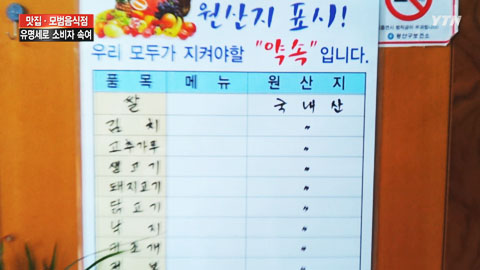 맛집·모범음식점
유명세로 소비자 속여
YTN
원산지 표시!
우리 모두가 지켜야할 "약속"입니다.
품목 메뉴 원산지
쌀 국내산
김치 〃
고추가루 〃
생고기 〃
돼지고기 〃
닭고기 〃
낙지 〃
〃
〃
용산구보건소